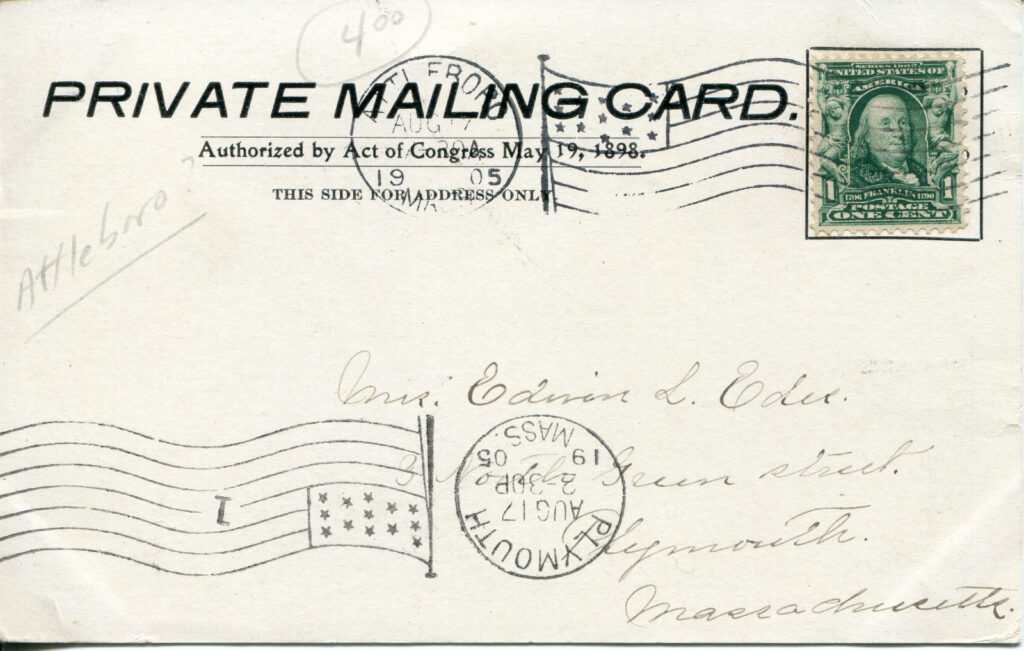 4.00
PRIVATE MAILING CARD.
Authorized by Act of Congress May 19, 1898.
THIS SIDE FOR ADDRESS ONLY
AUG 17
30A
19 05
MASS
SERIES 1902
UNITED STATES OF
AMERICA
1 1706 FRANKLIN 1790 1
POSTAGE
ONE CENT
Attleboro
Mrs. Edwin L. Edes.
3 North Green street.
Plymouth.
Massachusetts.
1
PLYMOUTH
AUG 17
2-30P
19 05
MASS.